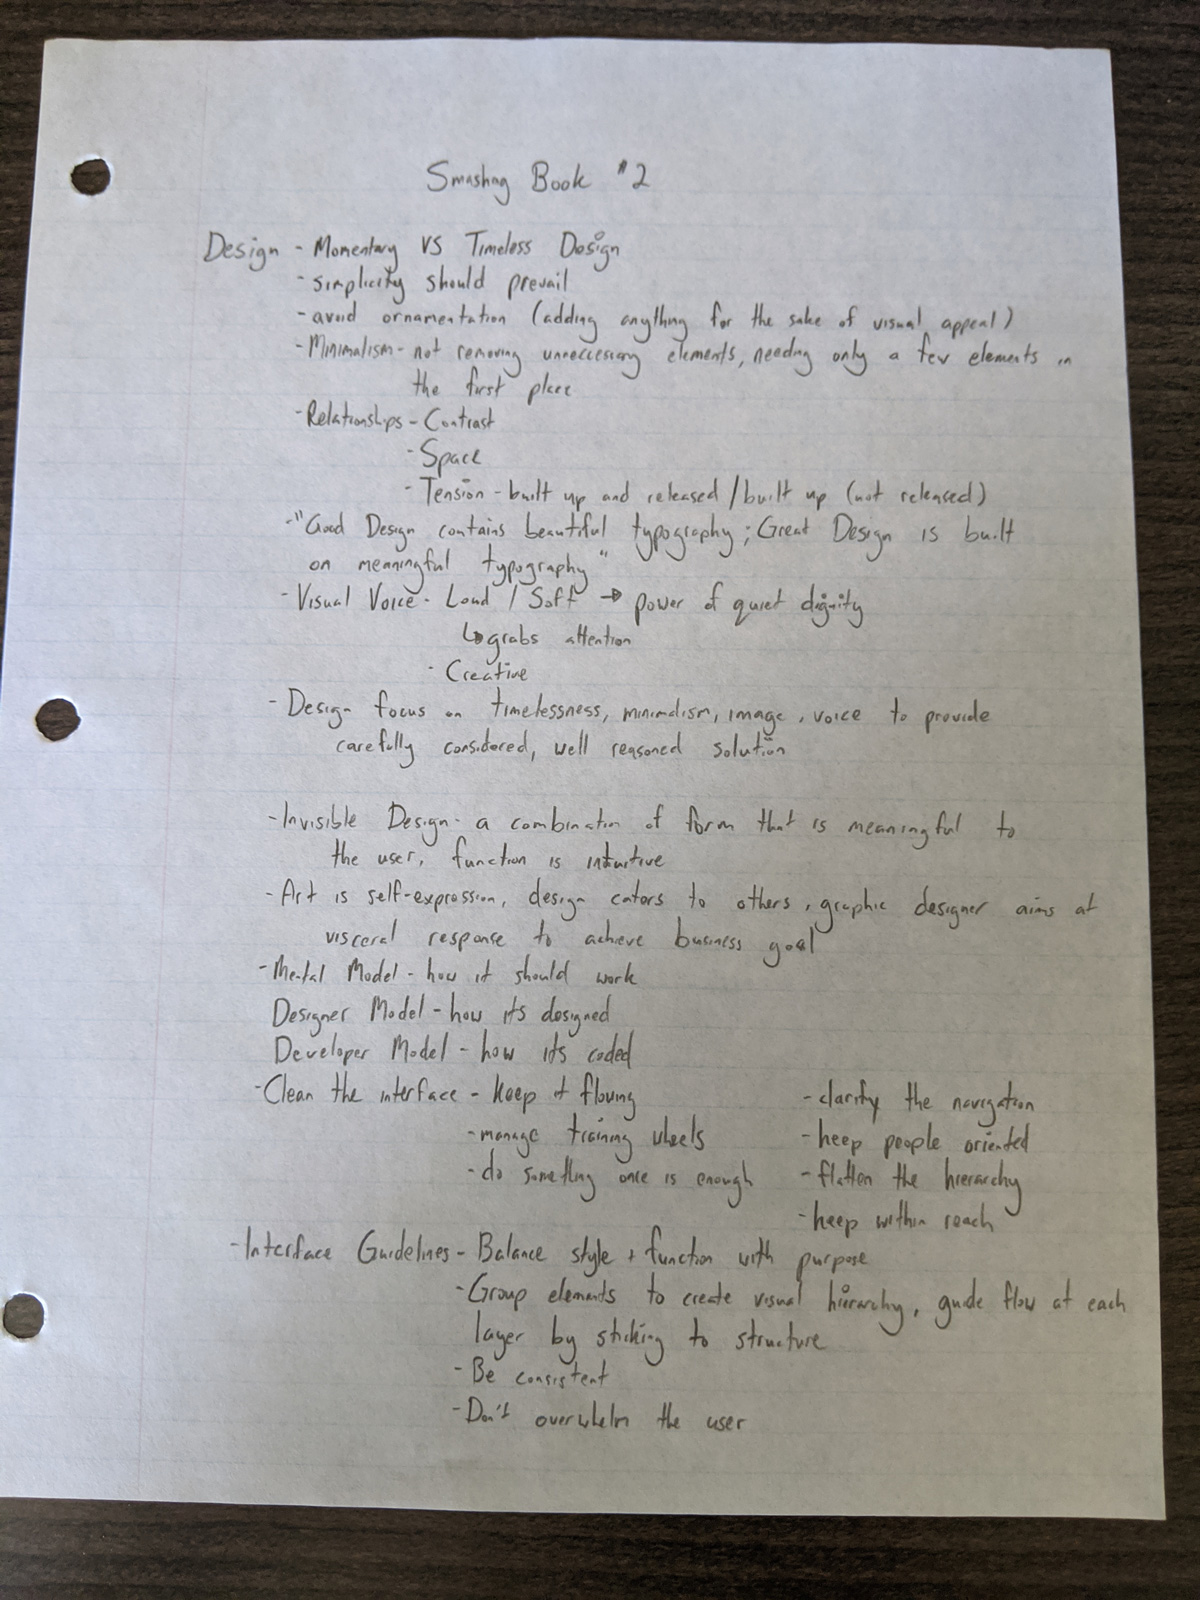 Smashing Book #2
Design - Momentary VS Timeless Design
- simplicity should prevail
- avoid ornamentation (adding anything for the sake of visual appeal)
- Minimalism - not removing unneccessary elements, needing only a few elements in
the first place
- Relationships - Contrast
- Space
- Tension - built up and released / built up (not released)
- "Good Design contains beautiful typography; Great Design is built
on meaningful typography"
- Visual Voice - Loud / Soft → power of quiet dignity
↳ grabs attention
- Creative
- Design focus on timelessness, minimalism, image, voice to provide
carefully considered, well reasoned solution
- Invisible Design - a combination of form that is meaningful to
the user, function is intuitive
- Art is self-expression, design caters to others, graphic designer aims at
visceral response to achieve business goal
- Mental Model - how it should work
Designer Model - how its designed
Developer Model - how its coded
- Clean the interface - keep it flowing - clarify the navigation
- manage training wheels - keep people oriented
- do something once is enough - flatten the hierarchy
- keep within reach
- Interface Guidelines - Balance style + function with purpose
- Group elements to create visual hierarchy, guide flow at each
layer by sticking to structure
- Be consistent
- Don't overwhelm the user